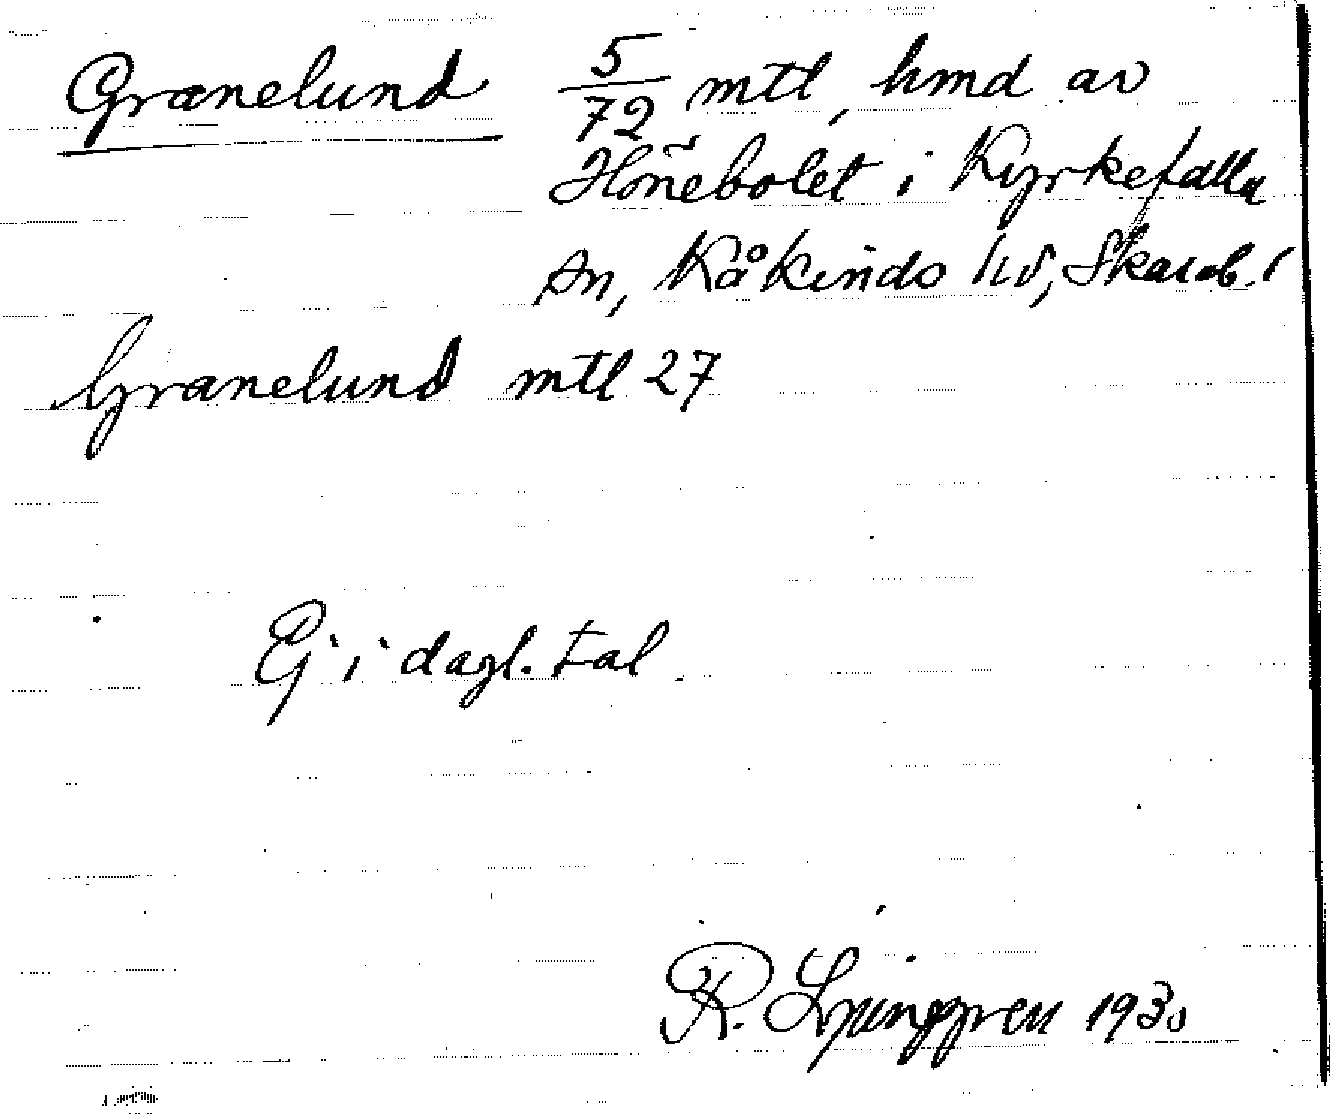 Granelund 5/72 mtl, hmd av
Hönebolet i Kyrkefalla
sn, Kåkinds hd, Skarab. l
Granelund mtl 27
Ej i dagl. tal
R. Ljunggren 1930